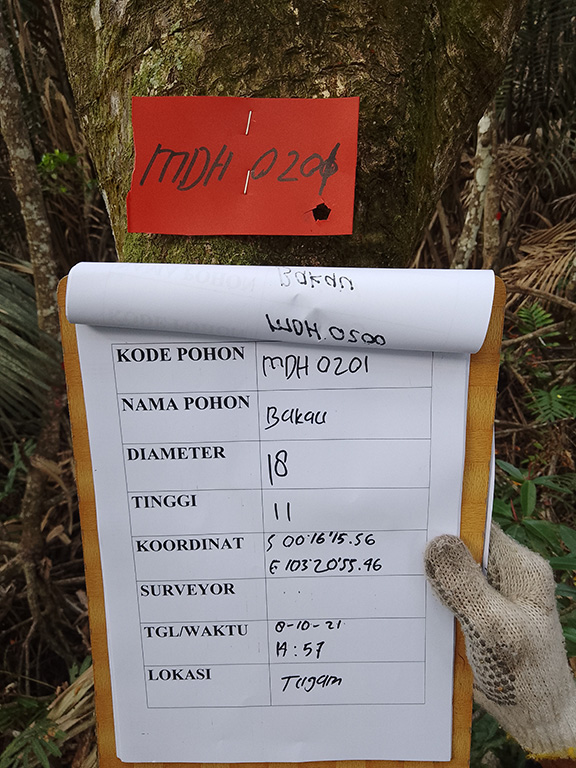 MDH 0201
Bakau
MDH 0200
KODE POHON MDH 0201
NAMA POHON Bakau
DIAMETER 18
TINGGI 11
KOORDINAT S 00°16'15.56
E 103°20'55.46
SURVEYOR
TGL/WAKTU 8-10-21
14:57
LOKASI Tugam